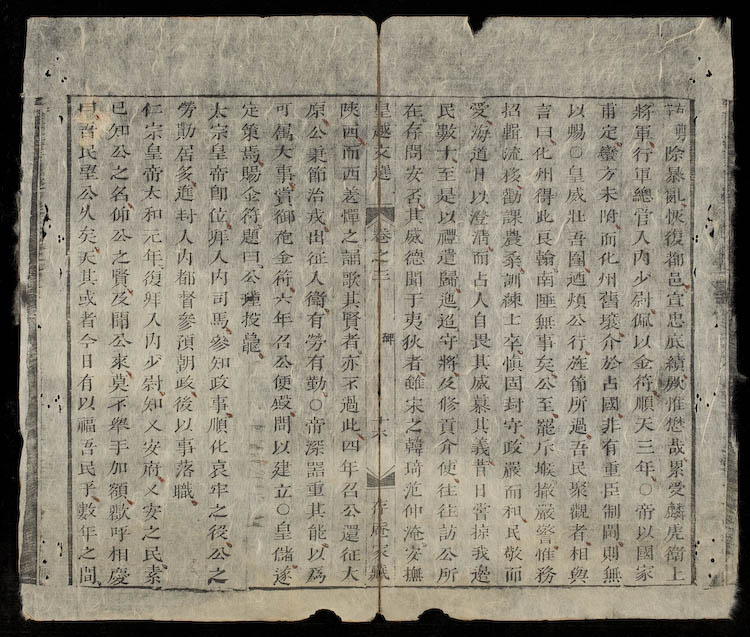 剪除暴亂恢復都邑宣忠底績厥惟懋哉累受麟虎衛上
將軍行軍總官入內少尉佩以金符順天三年○帝以國家
甫定蠻方未附而化州舊壤介於占國非有重臣制閫則無
以賜○皇威壯吾圉迺煩公行旌節所過吾民聚觀者相與
言曰化州得此良翰南陲無事矣公至罷斥堠撤嚴警惟務
招輯流移勸課農桑訓練士卒慎固封守政嚴而和民敬而
愛海道日以澄清而占人自畏其威慕其義昔日嘗掠我邊
民數十至是以禮遣歸迤守將及修貢介使往往訪公所
在存問安否其威德聞于夷狄者雖宋之韓琦范仲淹安撫
皇越文選 卷之三 碑 十六 存庵家藏
陝西而西羌憚之誦歌其賢者亦不過此四年召公還征大
原公秉節治戎出征入衛有勞有勤○帝深器重其能以為
可屬大事賞御袍金符六年召公便殿問以建立○皇儲遂
定策焉賜金符題曰公種投龍
太宗皇帝卽位拜入內司馬參知政事順化哀牢之役公之
勞勩居多進封入內都督參預朝政後以事落職
仁宗皇帝太和元年復拜入內少尉知乂安府乂安之民素
已知公之名仰公之賢及聞公來莫不舉手加額歡呼相慶
曰吾民望公久矣天其或者今日有以福吾民乎數年之間